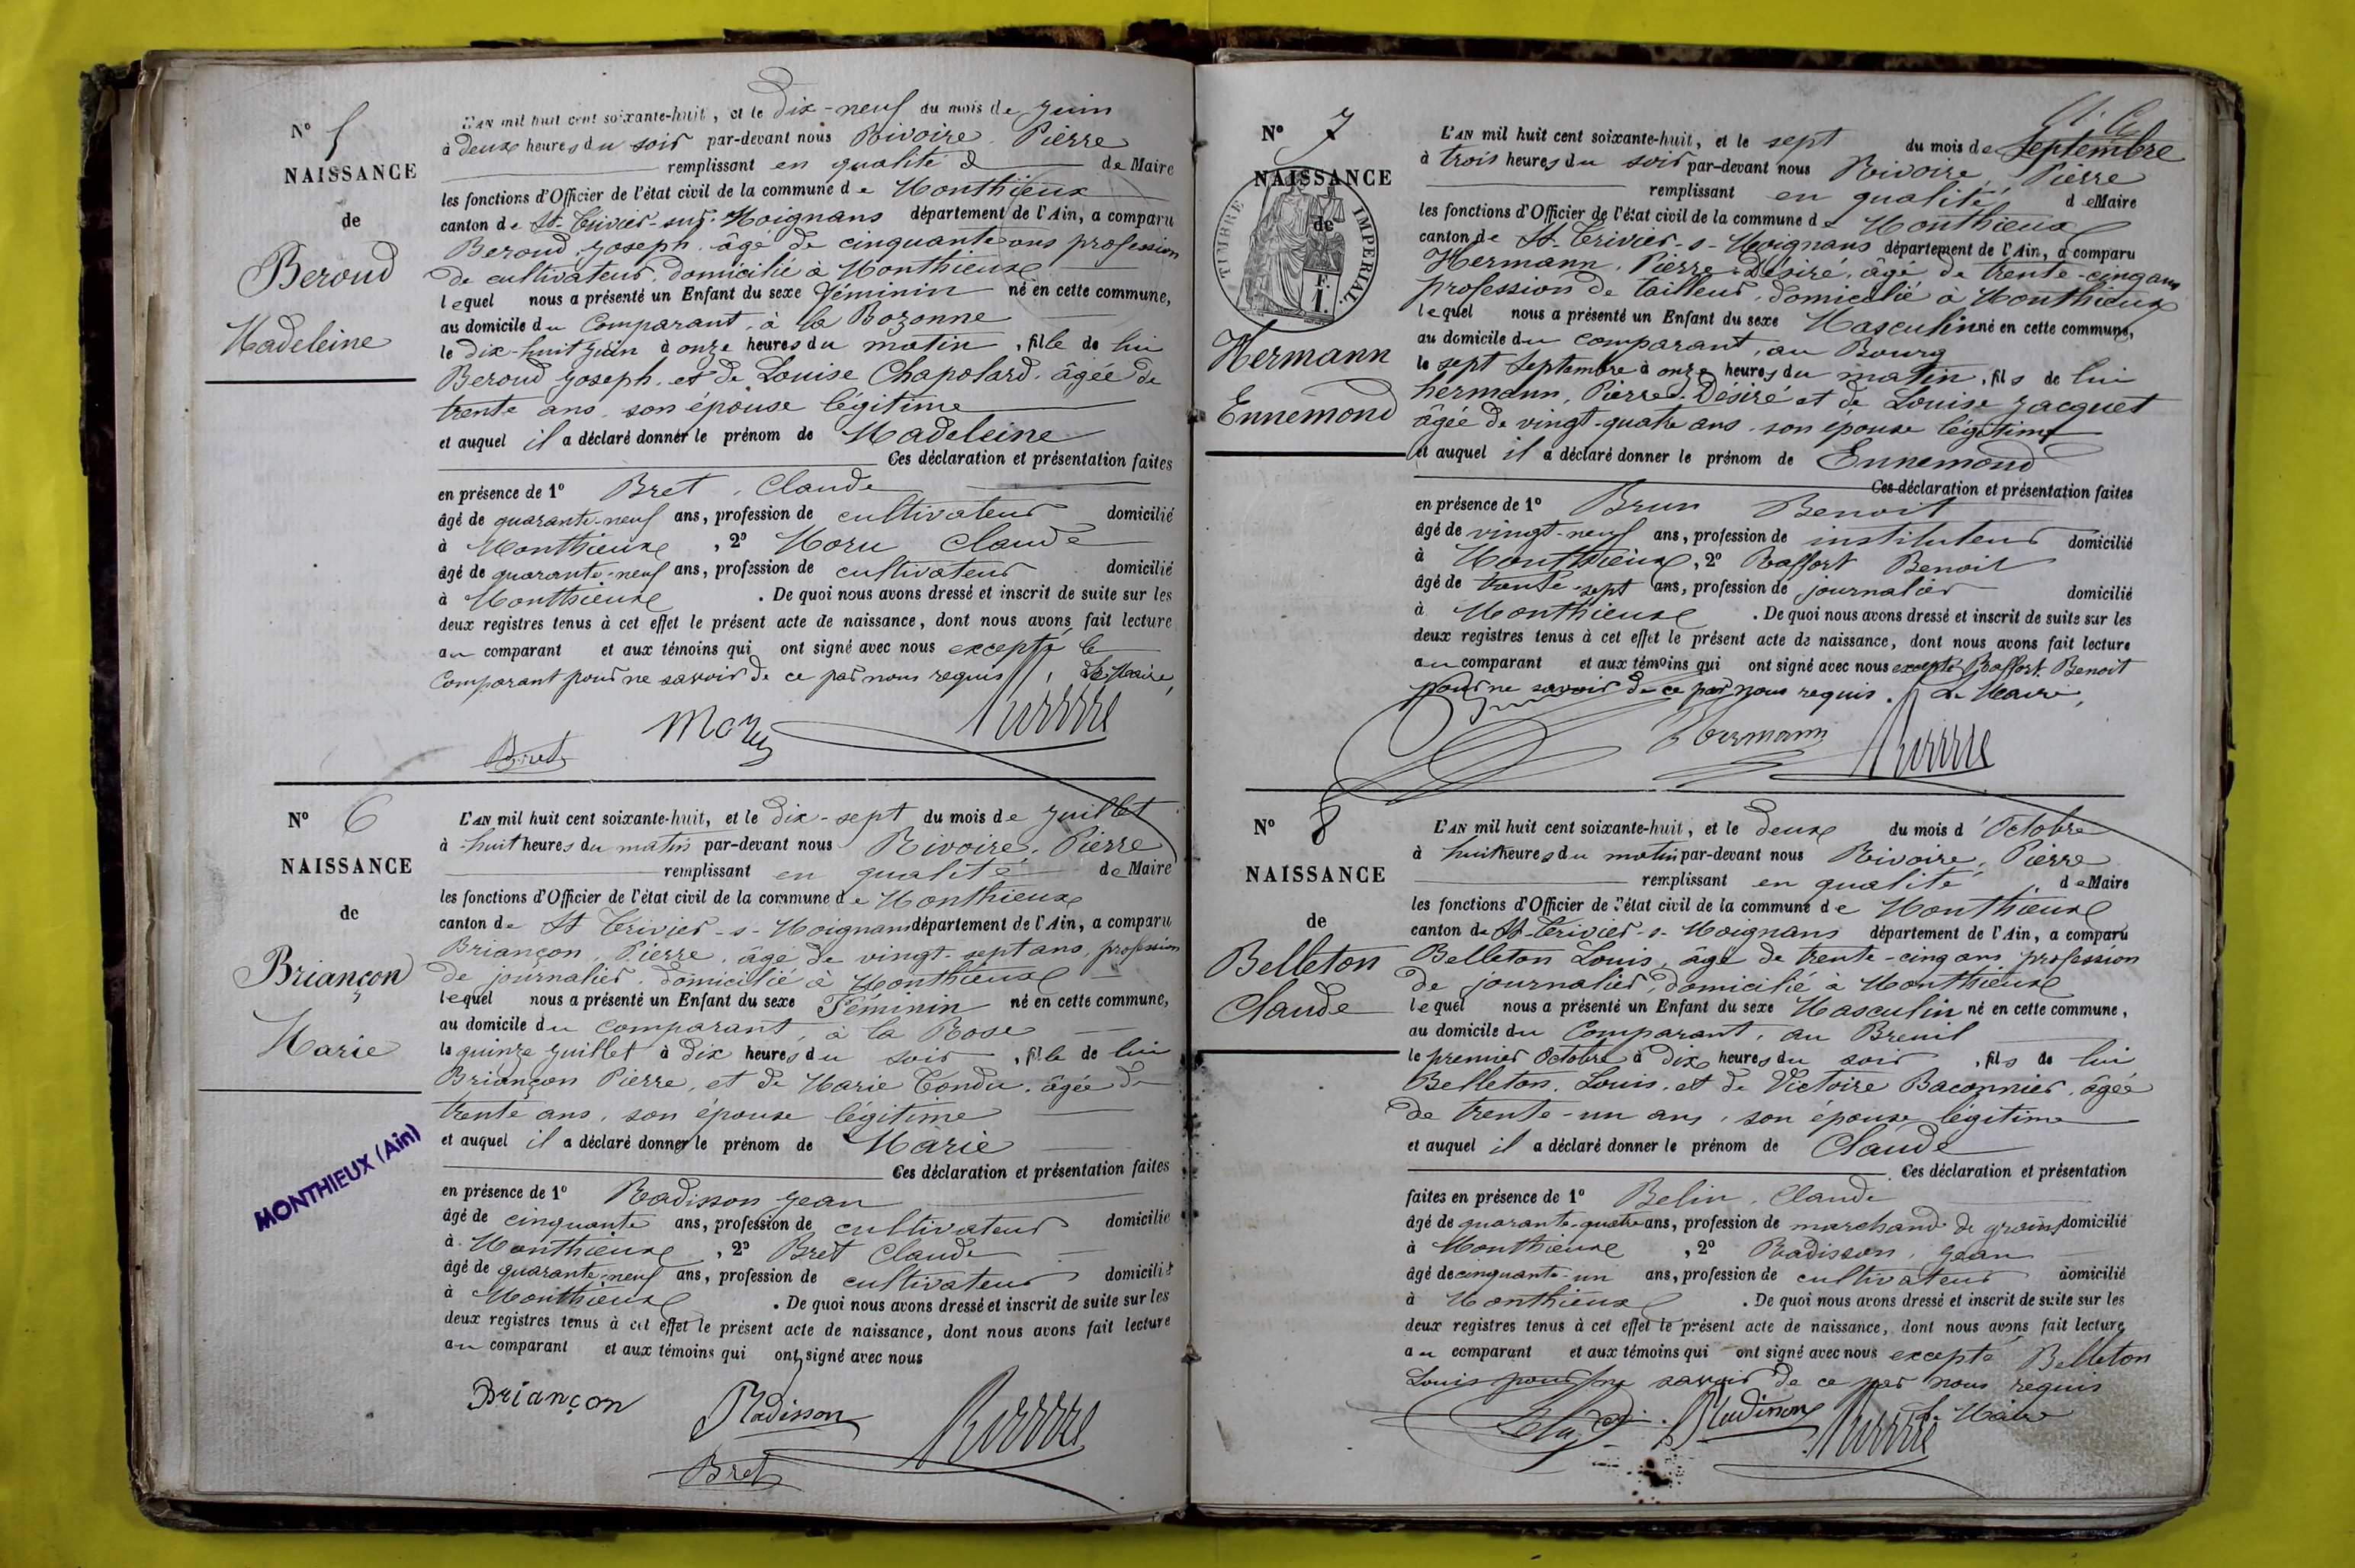 N° 5
NAISSANCE
de
Beroud
Madeleine
L'AN mil huit cent soixante-huit, et le dix-neuf du mois de Juin
à deux heures du soir par-devant nous Rivoire, Pierre
remplissant en qualité d de Maire
les fonctions d'Officier de l'état civil de la commune de Monthieux
canton de St-Trivier-sur-Moignans département de l'Ain, a comparu
Beroud, Joseph, âgé de cinquante ans profession
de cultivateur, domicilié à Monthieux
lequel nous a présenté un Enfant du sexe Féminin né en cette commune,
au domicile du Comparant, à la Bozonne
le dix-huit Juin à onze heures du matin, fille de lui
Beroud Joseph, et de Louise Chapolard, âgée de
trente ans, son épouse légitime
et auquel il a déclaré donner le prénom de Madeleine
Ces déclaration et présentation faites
en présence de 1° Bret, Claude
âgé de quarante-neuf ans, profession de cultivateur domicilié
à Monthieux, 2° Moru Claude
âgé de quarante-neuf ans, profession de cultivateur domicilié
à Monthieux. De quoi nous avons dressé et inscrit de suite sur les
deux registres tenus à cet effet le présent acte de naissance, dont nous avons fait lecture
au comparant et aux témoins qui ont signé avec nous excepté le
Comparant pour ne savoir de ce par nous requis, Le Maire,
Bret Moru
N° 6
NAISSANCE
de
Briançon
Marie
MONTHIEUX (Ain)
L'AN mil huit cent soixante-huit, et le dix-sept du mois de Juillet
à huit heures du matin par-devant nous Rivoire, Pierre
remplissant en qualité de Maire
les fonctions d'Officier de l'état civil de la commune de Monthieux
canton de St Trivier-s-Moignans département de l'Ain, a comparu
Briançon, Pierre, âgé de vingt-sept ans, profession
de journalier, domicilié à Monthieux
lequel nous a présenté un Enfant du sexe Féminin né en cette commune,
au domicile du Comparant, à la Rose
le quinze Juillet à dix heures du soir, fille de lui
Briançon Pierre, et de Marie Tondu, âgée de
trente ans, son épouse légitime
et auquel il a déclaré donner le prénom de Marie
Ces déclaration et présentation faites
en présence de 1° Radisson Jean
âgé de cinquante ans, profession de cultivateur domicilié
à Monthieux, 2° Bret Claude
âgé de quarante-neuf ans, profession de cultivateur domicilié
à Monthieux. De quoi nous avons dressé et inscrit de suite sur les
deux registres tenus à cet effet le présent acte de naissance, dont nous avons fait lecture
au comparant et aux témoins qui ont signé avec nous
Briançon Radisson
Bret
N° 7
NAISSANCE
de
TIMBRE IMPERIAL.
F.
1.
Hermann
Ennemond
L'AN mil huit cent soixante-huit, et le sept du mois de Septembre
à trois heures du soir par-devant nous Rivoire, Pierre
remplissant en qualité de Maire
les fonctions d'Officier de l'état civil de la commune de Monthieux
canton de St-Trivier-s-Moignans département de l'Ain, a comparu
Hermann, Pierre-Désiré, âgé de trente-cinq ans
profession de tailleur, domicilié à Monthieux
lequel nous a présenté un Enfant du sexe Masculin né en cette commune,
au domicile du comparant, au Bourg
le sept Septembre à onze heures du matin, fils de lui
hermann, Pierre-Désiré et de Louise Jacquet
âgée de vingt-quatre ans, son épouse légitime
et auquel il a déclaré donner le prénom de Ennemond
Ces déclaration et présentation faites
en présence de 1° Brun Benoit
âgé de vingt-neuf ans, profession de instituteur domicilié
à Monthieux, 2° Raffort Benoit
âgé de trente-sept ans, profession de journalier domicilié
à Monthieux. De quoi nous avons dressé et inscrit de suite sur les
deux registres tenus à cet effet le présent acte de naissance, dont nous avons fait lecture
au comparant et aux témoins qui ont signé avec nous excepté Raffort Benoit
pour ne savoir de ce par nous requis. Le Maire,
hermann
N° 8
NAISSANCE
de
Belleton
Claude
L'AN mil huit cent soixante-huit, et le deux du mois d'Octobre
à huit heures du matin par-devant nous Rivoire, Pierre
remplissant en qualité de Maire
les fonctions d'Officier de l'état civil de la commune de Monthieux
canton de St-Trivier-s-Moignans département de l'Ain, a comparu
Belleton Louis, âgé de trente-cinq ans profession
de journalier, domicilié à Monthieux
lequel nous a présenté un Enfant du sexe Masculin né en cette commune,
au domicile du Comparant, au Breuil
le premier Octobre à dix heures du soir, fils de lui
Belleton, Louis, et de Victoire Baconnier, âgée
de trente-un ans, son épouse légitime
et auquel il a déclaré donner le prénom de Claude
Ces déclaration et présentation
faites en présence de 1° Belin, Claude
âgé de quarante-quatre ans, profession de marchand de grains domicilié
à Monthieux, 2° Radisson, Jean
âgé de cinquante-un ans, profession de cultivateur domicilié
à Monthieux. De quoi nous avons dressé et inscrit de suite sur les
deux registres tenus à cet effet le présent acte de naissance, dont nous avons fait lecture
au comparant et aux témoins qui ont signé avec nous excepté Belleton
Louis pour ne savoir de ce par nous requis
Le Maire
Radisson